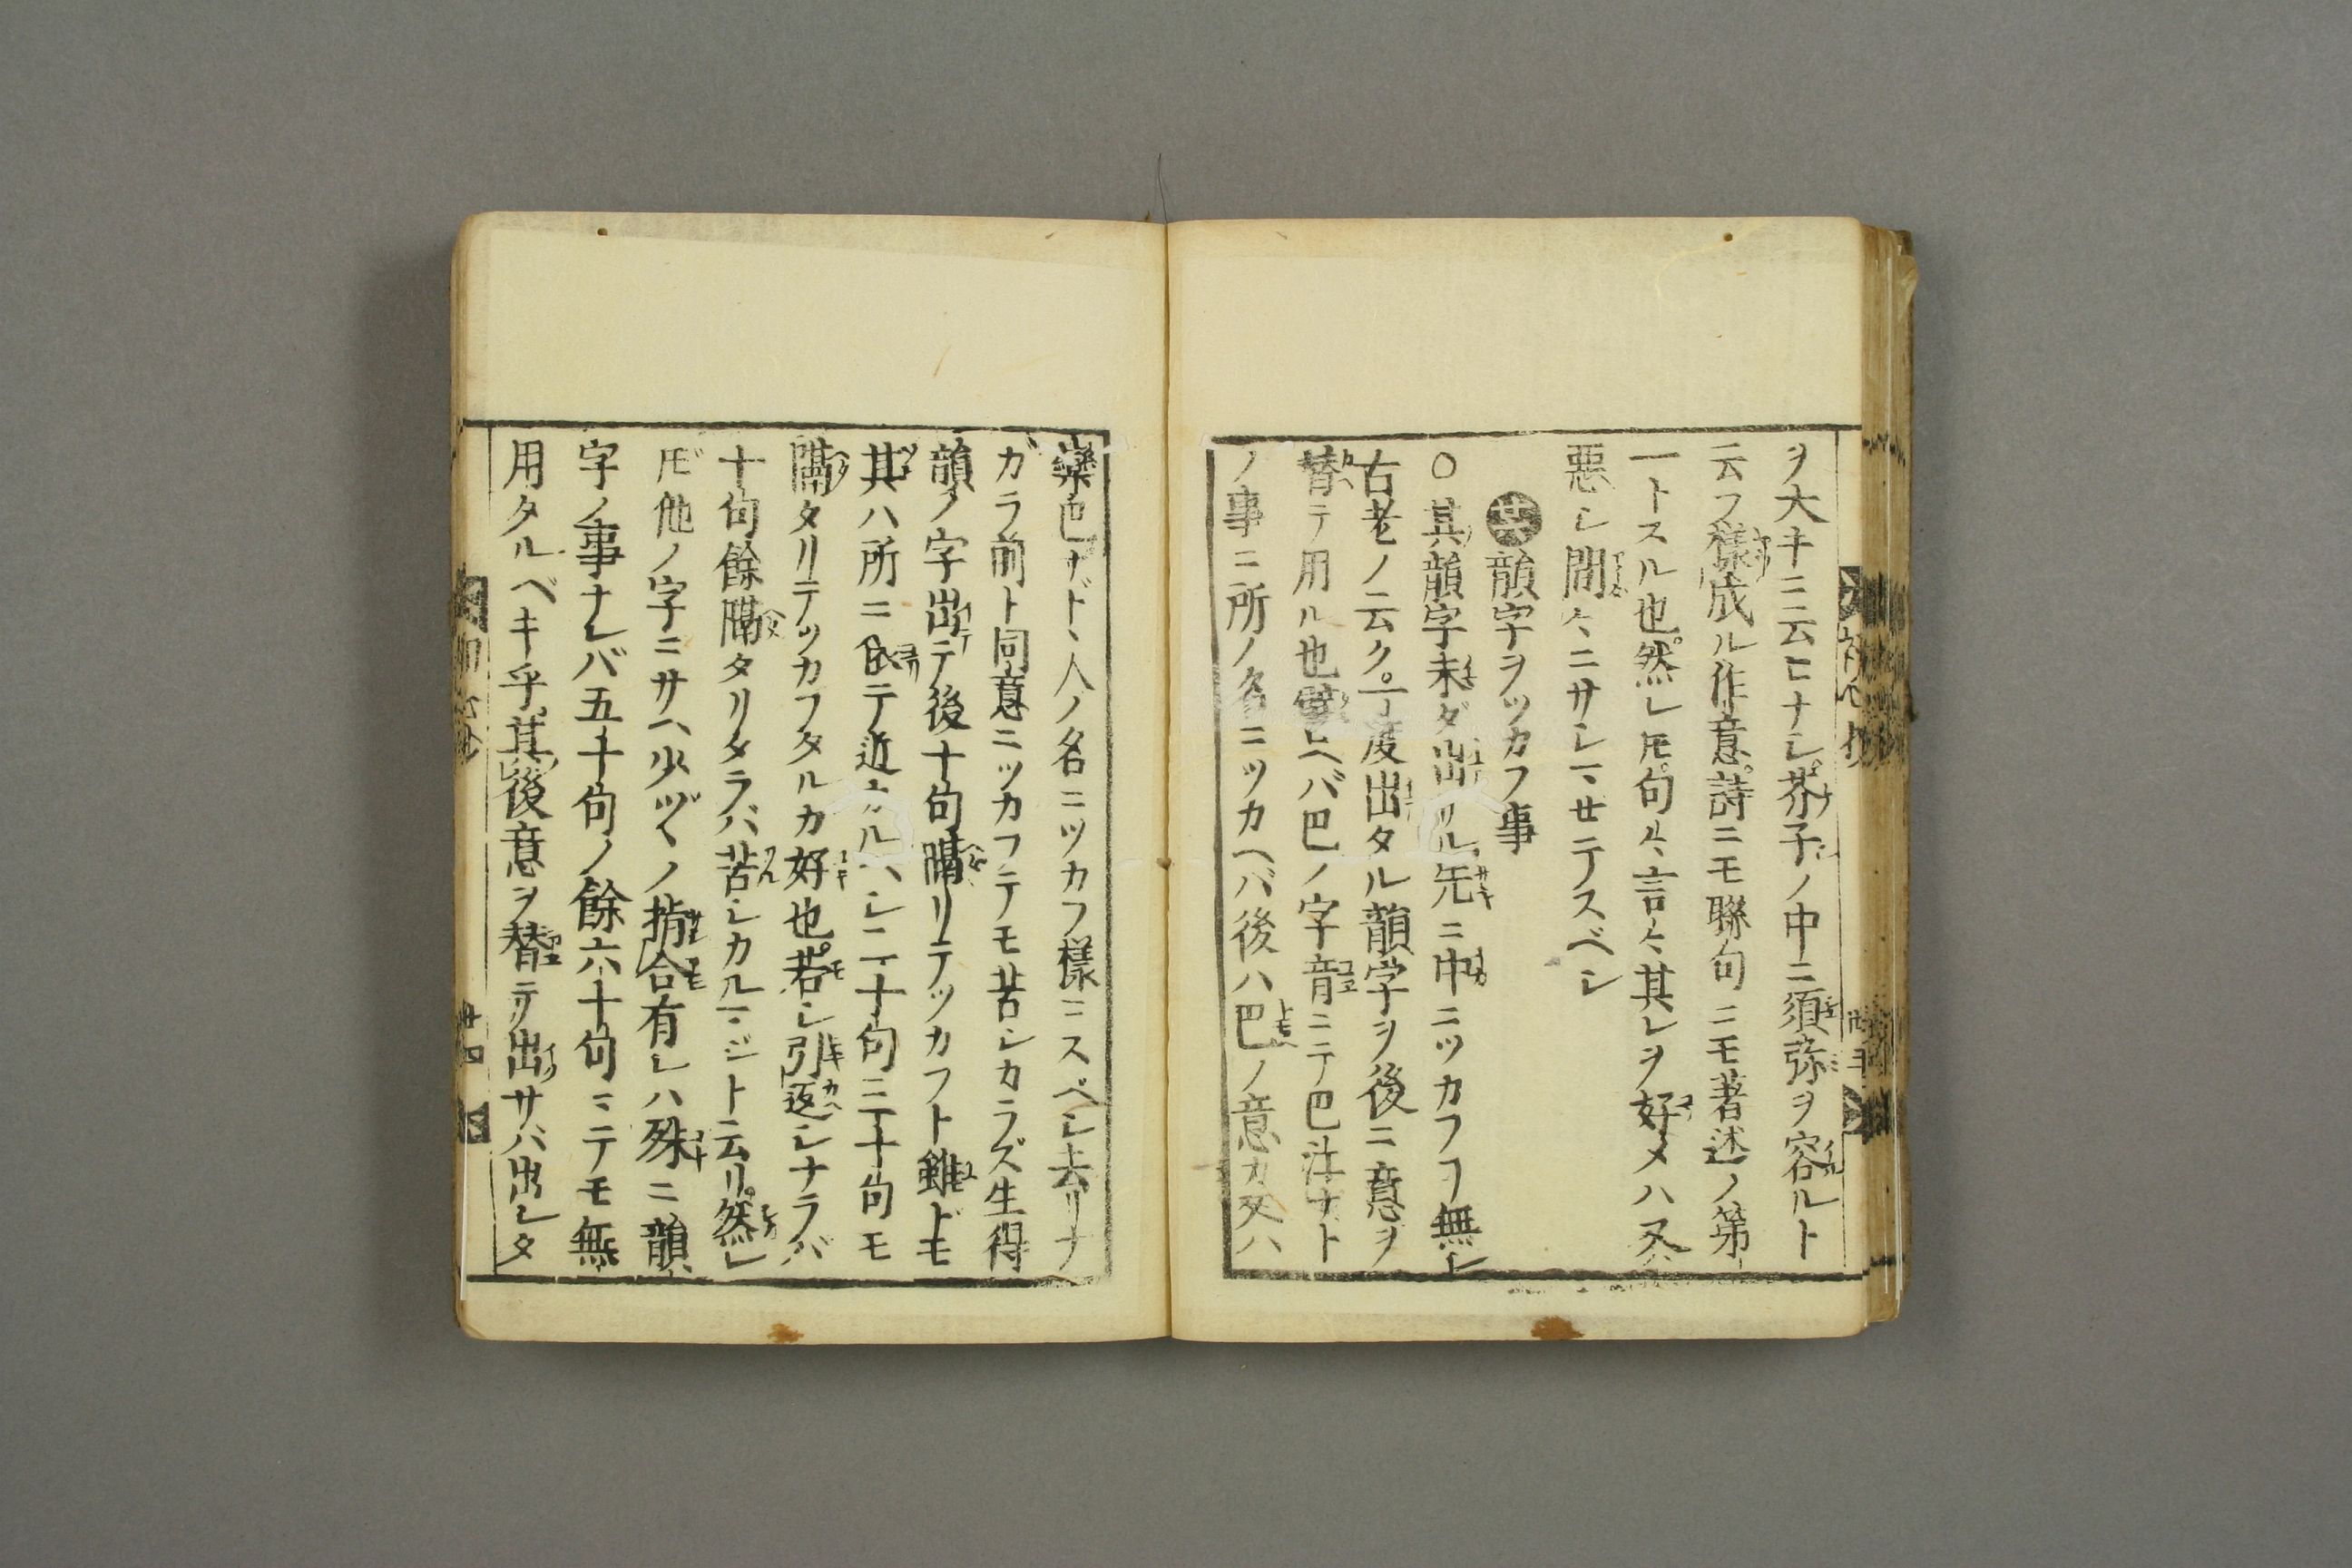 ヲ大キニ云ヒナシ芥子ノ中ニ須弥ヲ容ルト
云フ様成ル作意詩ニモ聯句ニモ著述ノ第
一トスル也然レ𪜈句々言々其レヲ好メハ又
悪シ間々ニサレマセテスベシ
韻字ヲツカフ事
○其韻字未ダ出ザル先ニ中ニツカフヿ無レ
古老ノ云ク一度出タル韻字ヲ後ニ意ヲ
替テ用ル也譬ヘバ巴ノ字音ニテ巴注ナト
ノ事ニ所ノ名ニツカヘバ後ハ巴ノ意カ又ハ
欒巴ナド人ノ名ニツカフ様ニスベシ去リナ
ガラ前ト同意ニツカフテモ苦シカラズ生得
韻ノ字出テ後十句隔リテツカフト雖ドモ
其ハ所ニ依テ近カルベシ二十句三十句モ
隔タリテツカフタルカ好也若シ引返シナラバ
十句餘隔タリタラバ苦シカルマジト云リ然レ
𪜈他ノ字ニサヘ少ヅヽノ指合有レハ殊ニ韻
字ノ事ナレバ五十句ノ餘六十句ニテモ無
用タルベキ乎其後意ヲ替テ出サバ出レタ